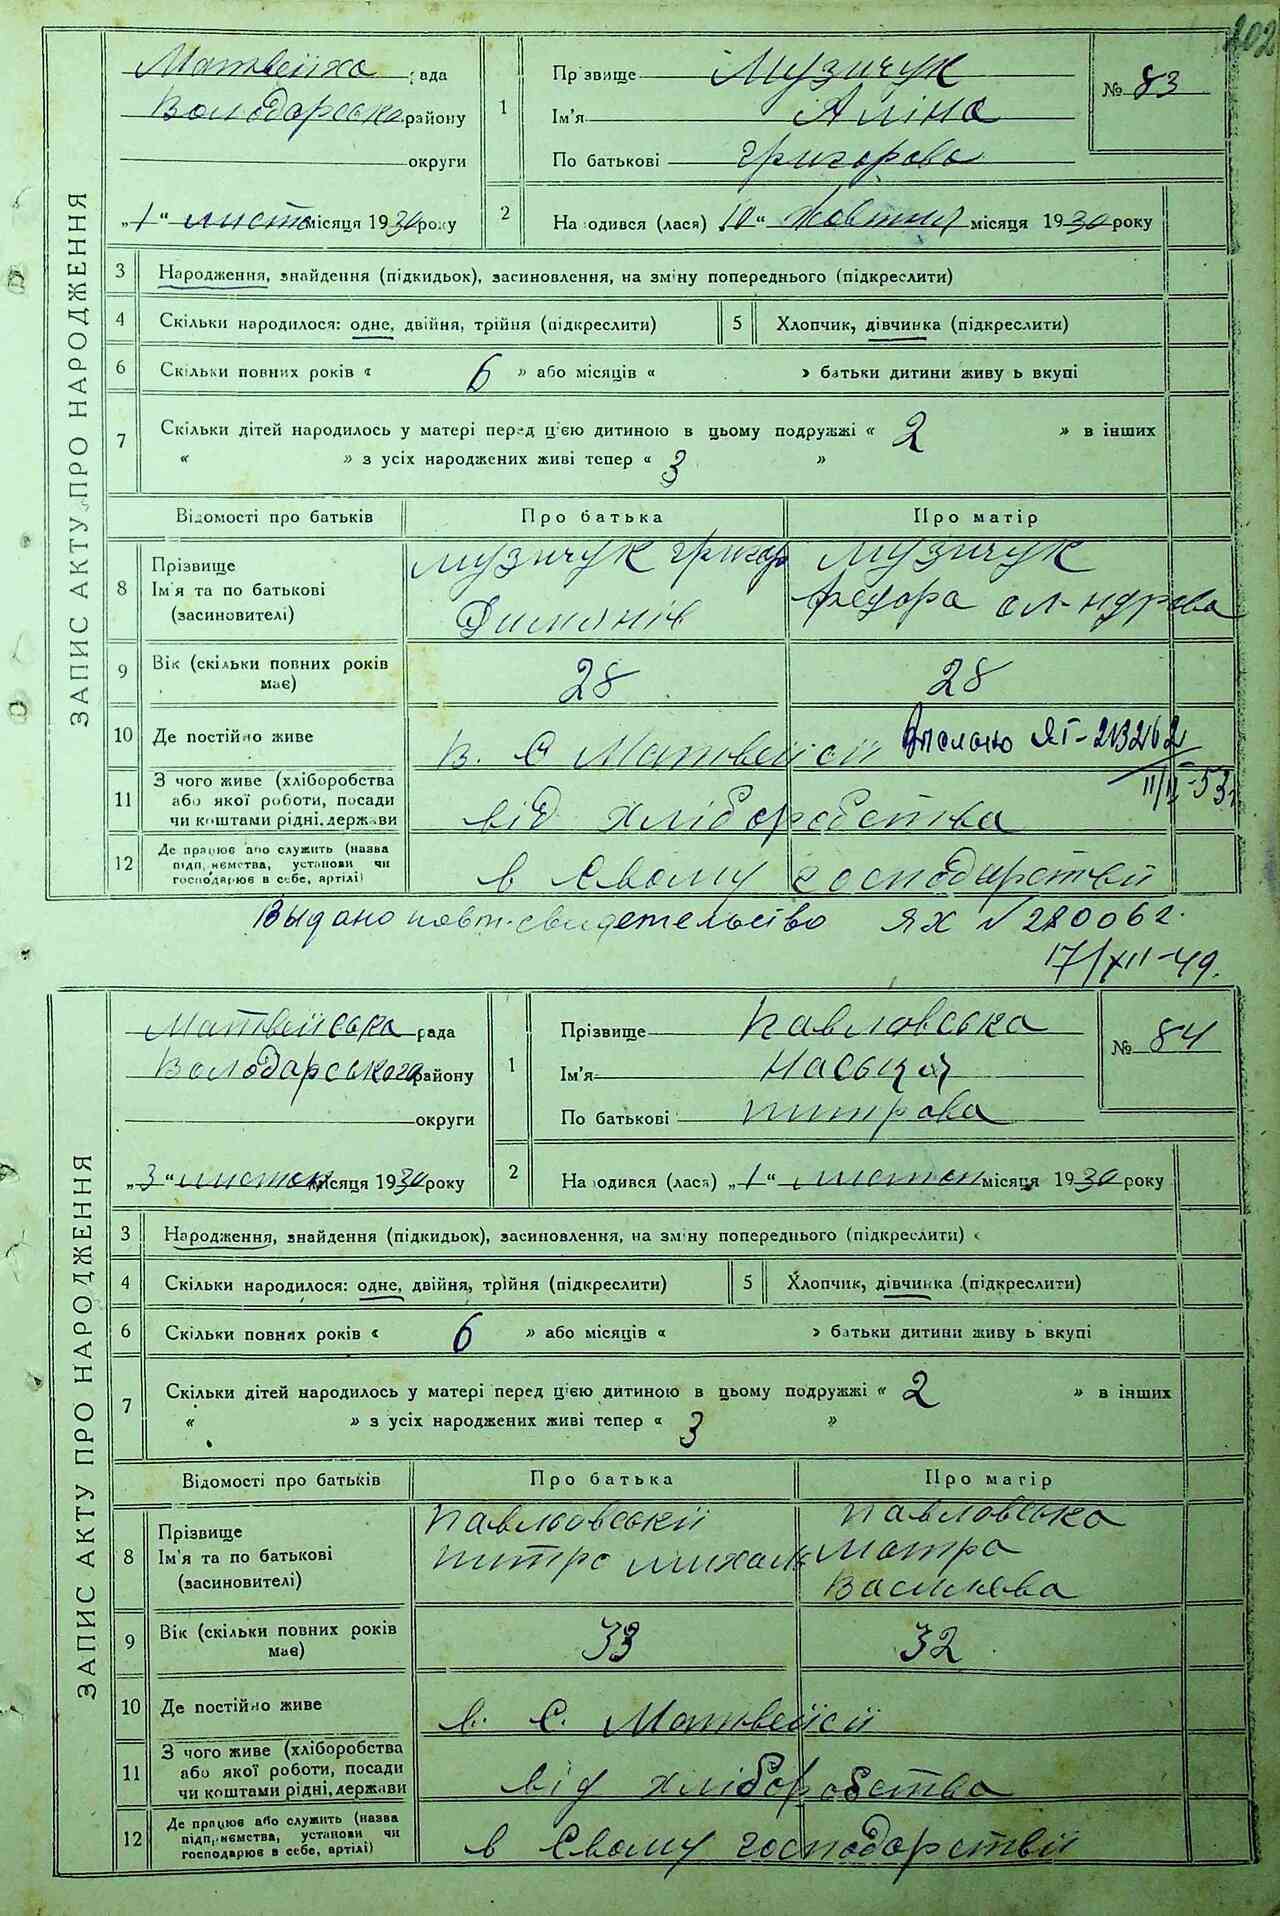 202
ЗАПИС АКТУ ПРО НАРОДЖЕННЯ
Матвеїха рада
Володарська району
округи
„1“ листо місяця 1930 року
1 Прізвище Музичук
Ім'я Аліна
По батькові григорова
№ 83
2 Народився (лася) „10“ жовтня місяця 1930 року
3 Народження, знайдення (підкидьок), засиновлення, на зміну попереднього (підкреслити)
4 Скільки народилося: одне, двійня, трійня (підкреслити) 5 Хлопчик, дівчинка (підкреслити)
6 Скільки повних років « 6 » або місяців « » батьки дитини живуть вкупі
7 Скільки дітей народилось у матері перед цією дитиною в цьому подружжі « 2 » в інших
« » з усіх народжених живі тепер « 3 »
Відомості про батьків Про батька Про матір
8 Прізвище
Ім'я та по батькові
(засиновителі)
Музичук григор
Димянів
Музичук
Федора ол-ндрова
9 Вік (скільки повних років має) 28 28
10 Де постійно живе В. С Матвейсії
ЯГ-213262
11/II-53
11 З чого живе (хліборобства
або якої роботи, посади
чи коштами рідні, держави
від хліборобства
12 Де працює або служить (назва
підприємства, установи чи
господарює в себе, артілі)
в Свому господарствії
Выдано повт. свидетельство ЯХ № 280062.
17/XII-49.
ЗАПИС АКТУ ПРО НАРОДЖЕННЯ
Матвеїська рада
Володарського району
округи
„3“ листоп місяця 1930 року
1 Прізвище Павловська
Ім'я
По батькові питрова
№ 84
2 Народився (лася) „1“ листоп місяця 1930 року
3 Народження, знайдення (підкидьок), засиновлення, на зміну попереднього (підкреслити)
4 Скільки народилося: одне, двійня, трійня (підкреслити) 5 Хлопчик, дівчинка (підкреслити)
6 Скільки повних років « 6 » або місяців « » батьки дитини живуть вкупі
7 Скільки дітей народилось у матері перед цією дитиною в цьому подружжі « 2 » в інших
« » з усіх народжених живі тепер « 3 »
Відомості про батьків Про батька Про матір
8 Прізвище
Ім'я та по батькові
(засиновителі)
Павловський
питро михаль
Павловська
Мотра
Василева
9 Вік (скільки повних років має) 33 32
10 Де постійно живе в. С. Матвейсії
11 З чого живе (хліборобства
або якої роботи, посади
чи коштами рідні, держави
від хліборобства
12 Де працює або служить (назва
підприємства, установи чи
господарює в себе, артілі)
в Свому господарствії